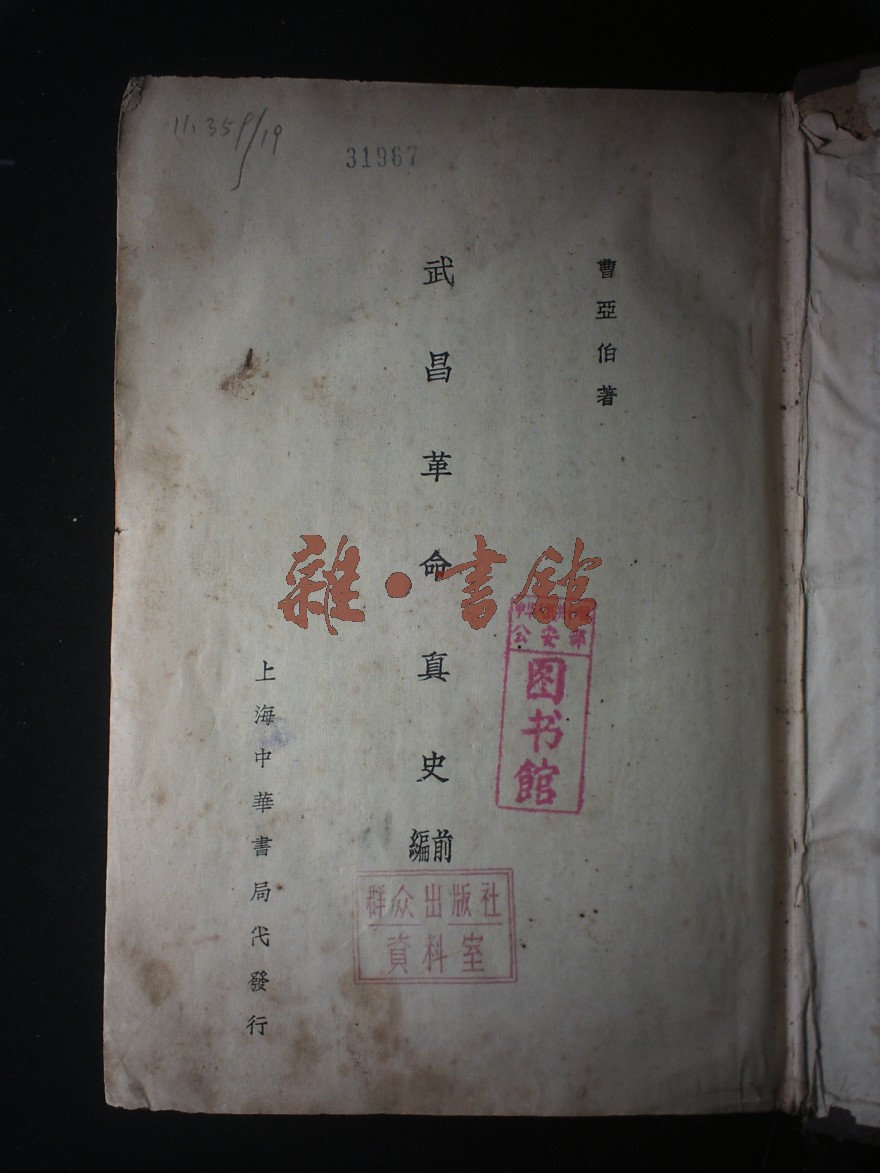 31967
曹亞伯著
武昌革命真史
前編
上海中華書局代發行
雜·書館
公安部
图书館
群众出版社
資料室